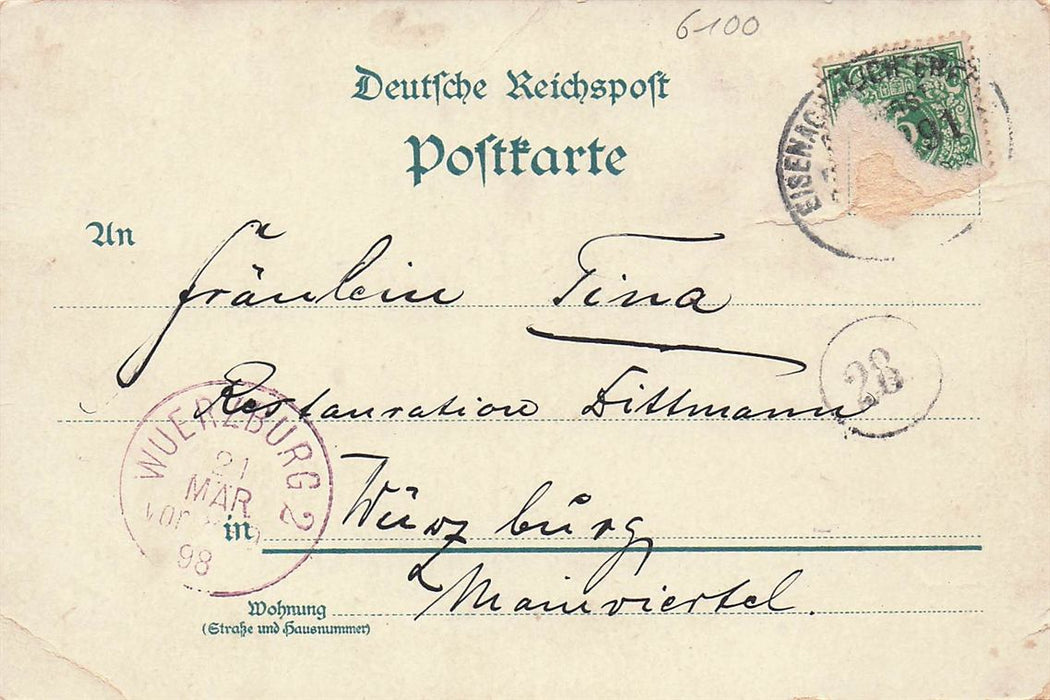 6100
Deutsche Reichspost
Postkarte
EISENACH
291
An
Fräulein Tina
Restauration Dittmann
28
WUERZBURG 2
21
MAR
Vor
98
in Würzburg
Mainviertel.
Wohnung
(Straße und Hausnummer)